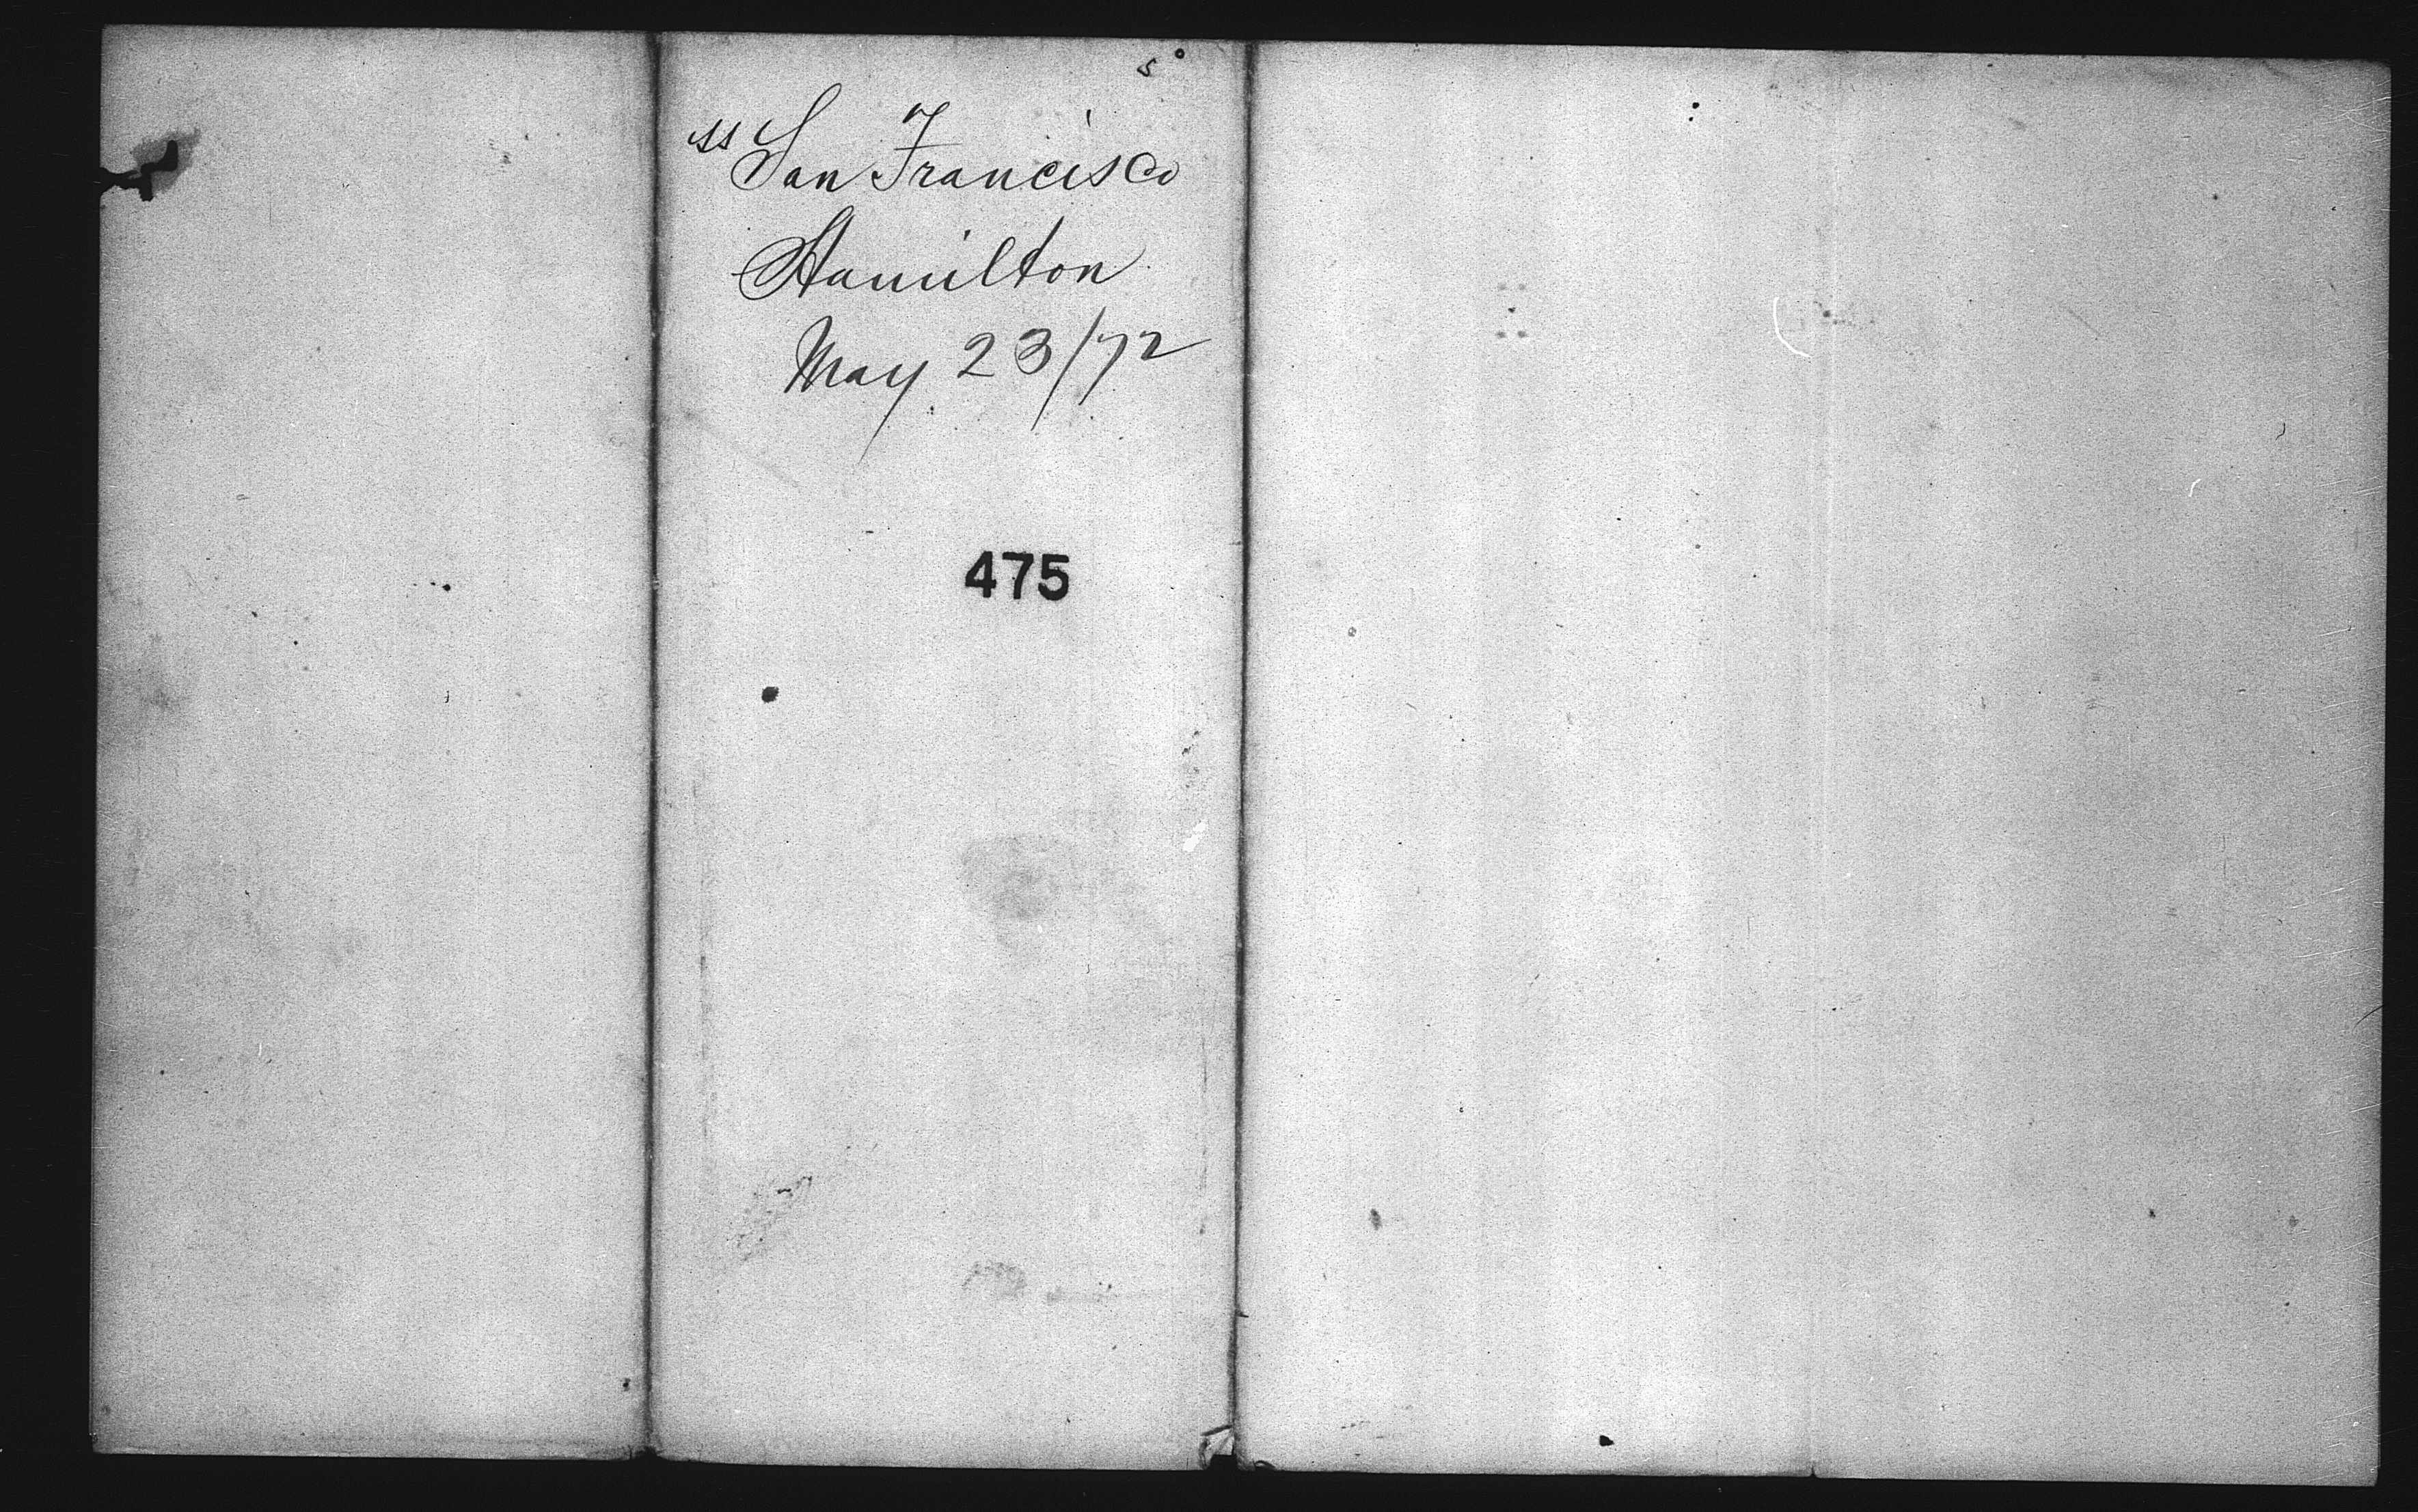 ss San Francisco
Hamilton
May 23/72
475